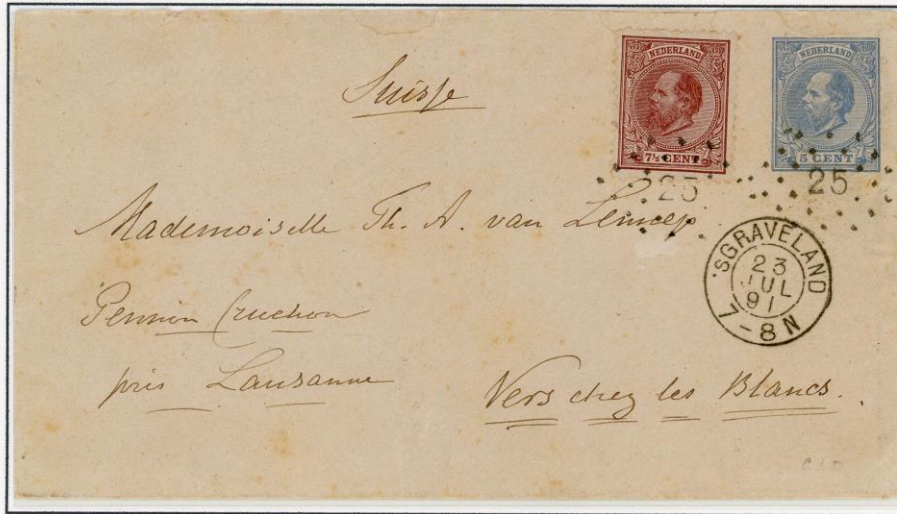 NEDERLAND
7½ CENT
NEDERLAND
5 CENT
25
25
Suisse
Mademoiselle Th. A. van Lennep
'SGRAVELAND
23
JUL
91
7-8 N
Pension Cruchon
près Lausanne
Vers chez les Blancs.